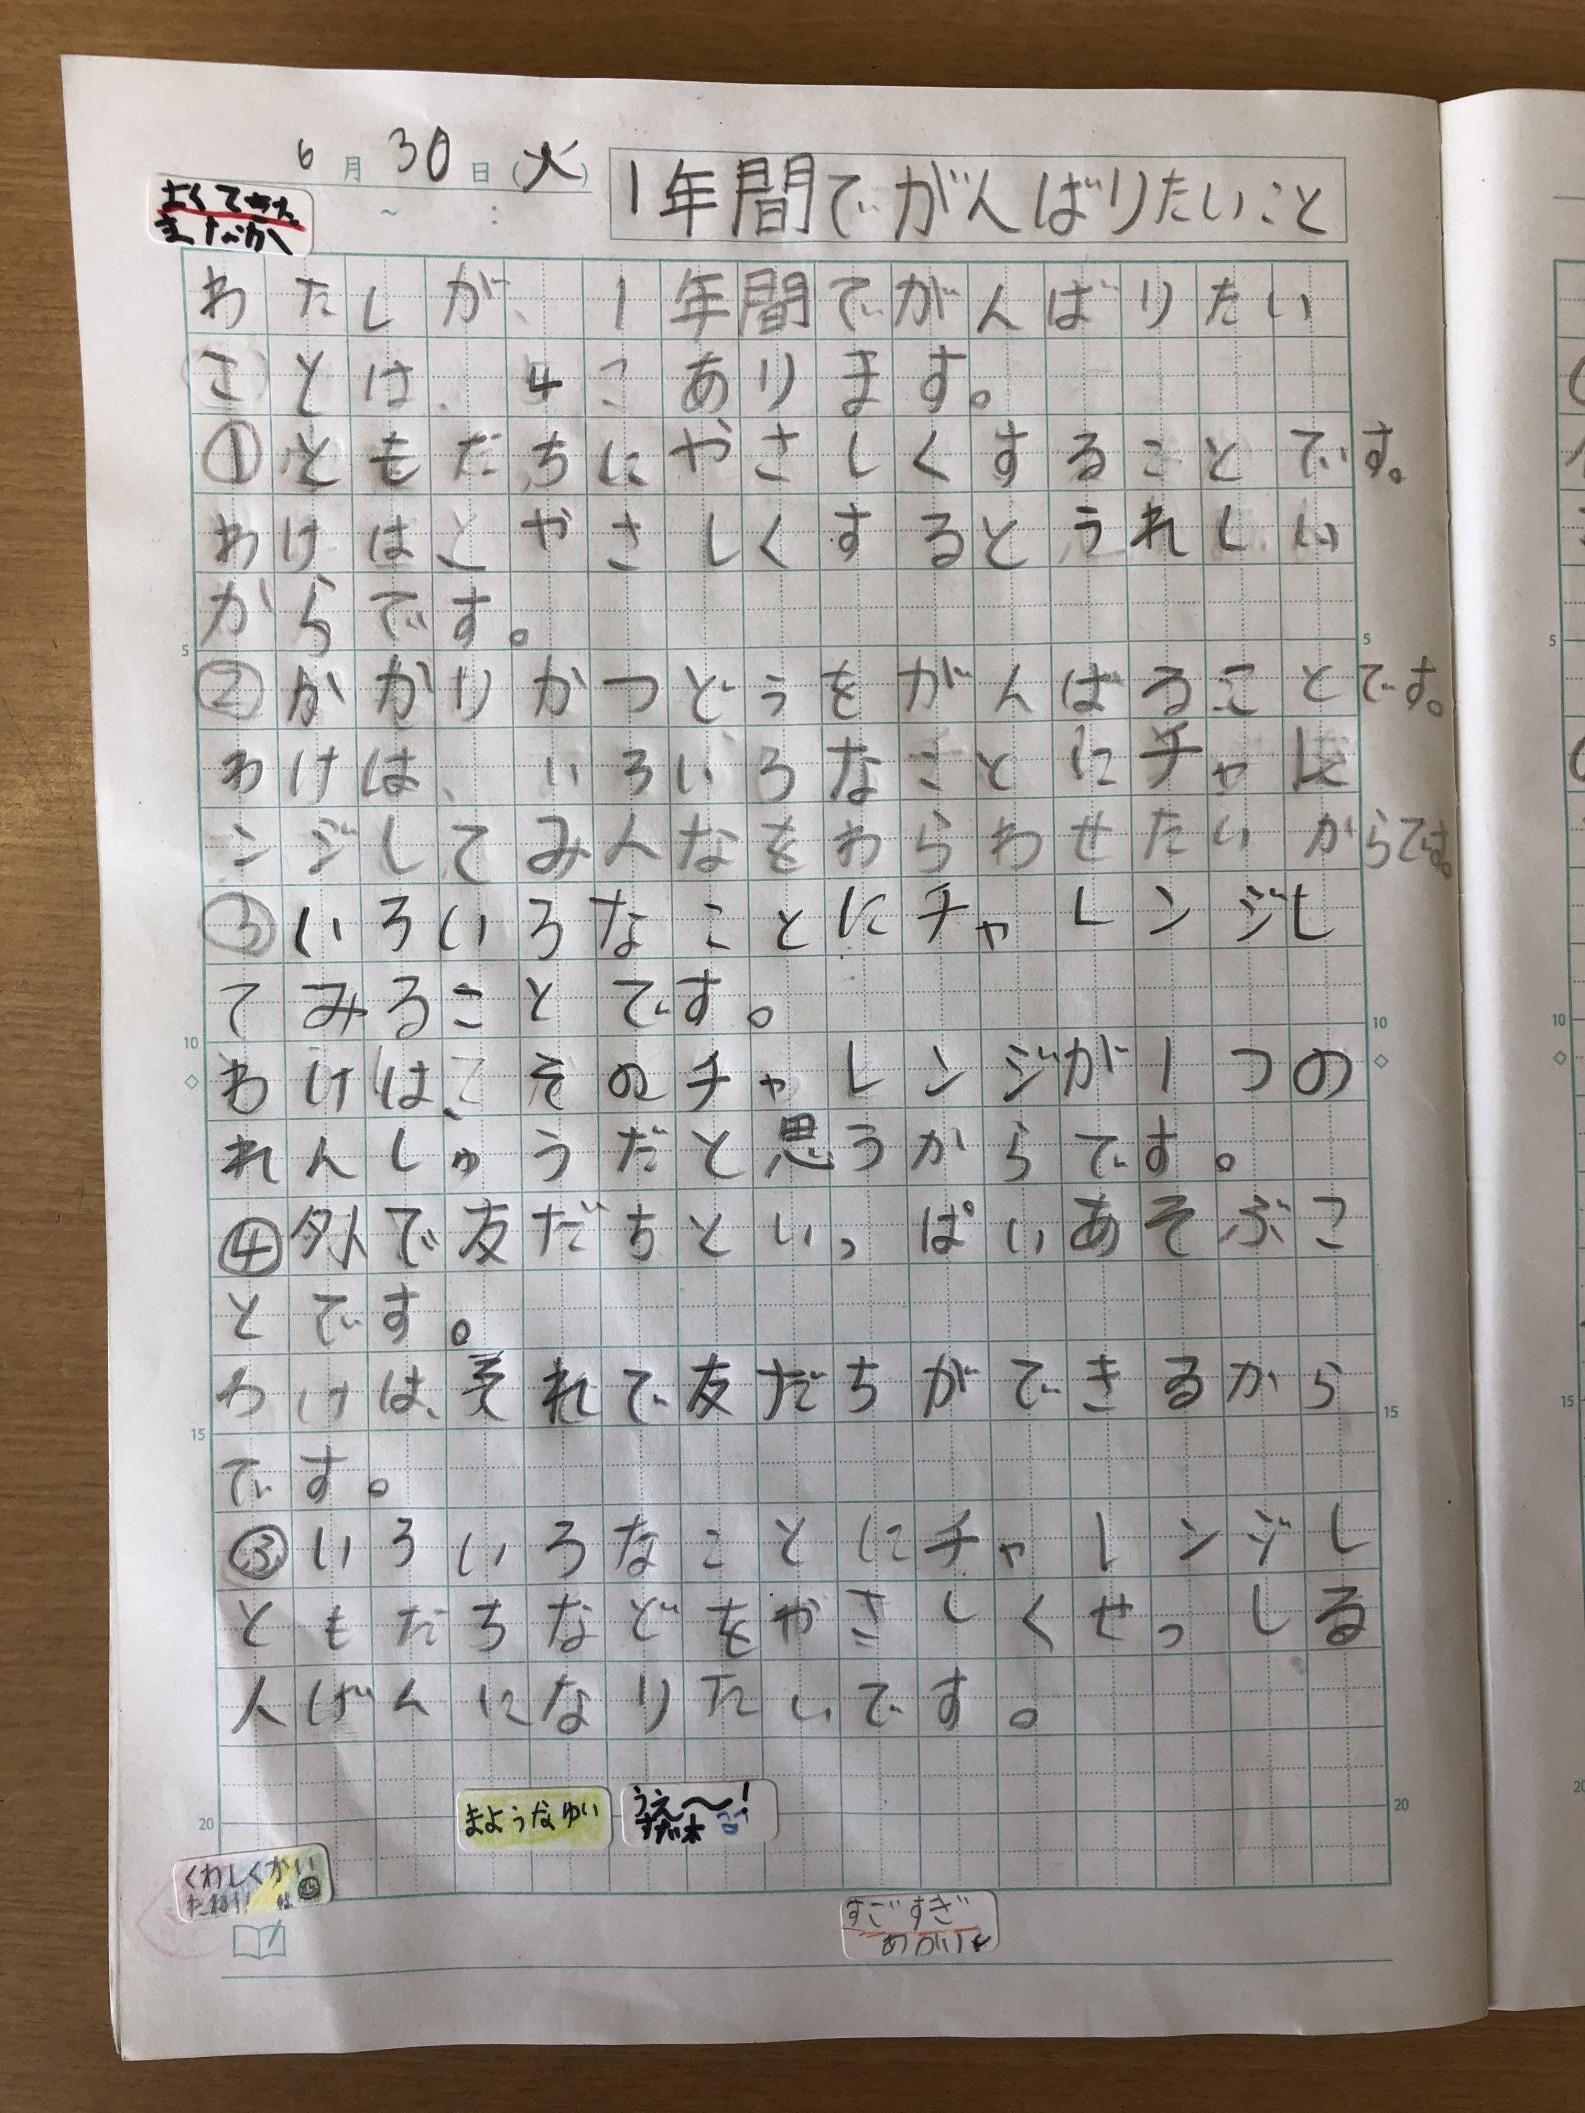 6月30日(火)
1年間でがんばりたいこと
わたしが、1年間でがんばりたい
ことは、4こあります。
①ともだちにやさしくすることです。
わけはとやさしくするとうれしい
からです。
②かかりかつどうをがんばることです。
わけは、いろいろなことにチャレ
ンジしてみんなをわらわせたいからです。
③いろいろなことにチャレンジし
てみることです。
わけは、そのチャレンジが1つの
れんしゅうだと思うからです。
④外で友だちといっぱいあそぶこ
とです。
わけは、それで友だちができるから
です。
③いろいろなことにチャレンジし
ともだちなどをやさしくせっしる
人げんになりたいです。
まようなゆい
うえ〜!
くわしくかい
すごすぎ
5
10
15
20
5
10
15
20